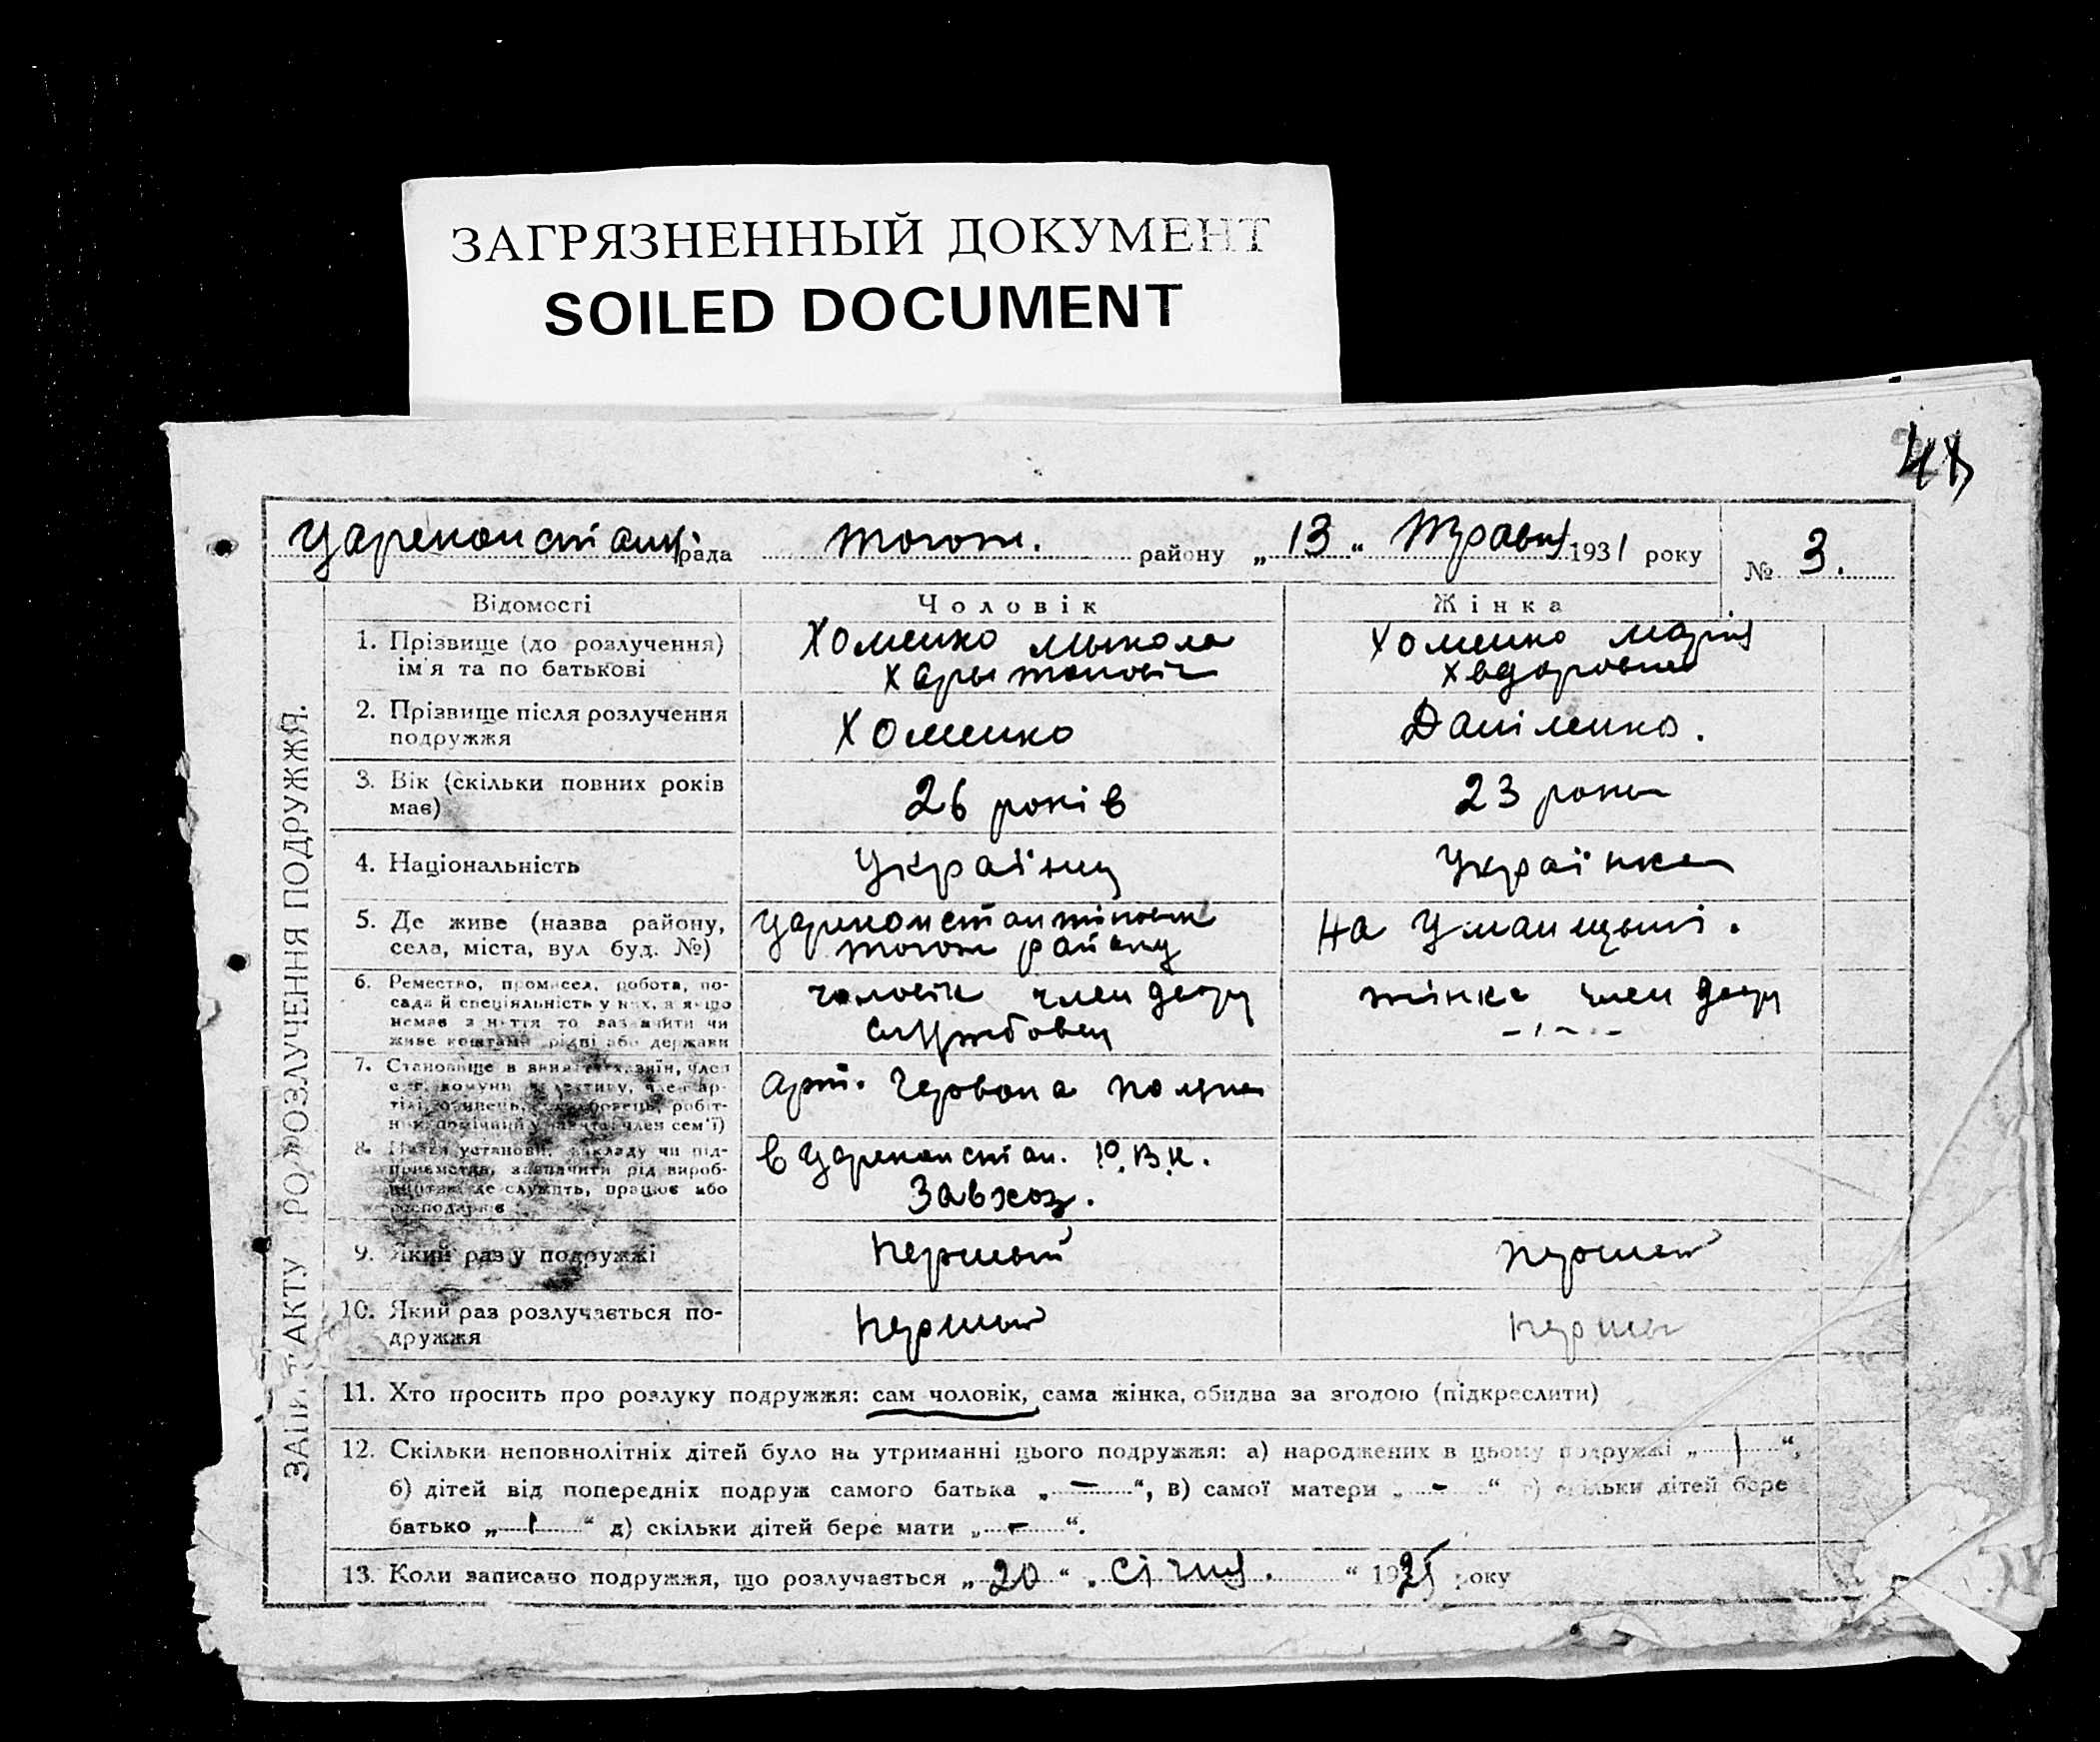 ЗАГРЯЗНЕННЫЙ ДОКУМЕНТ
SOILED DOCUMENT
рада району „ 13 “ Травня 1931 року
№ 3.
ЗАПИС АКТУ ПРО РОЗЛУЧЕННЯ ПОДРУЖЖЯ.
Відомості Чоловік Жінка
1. Прізвище (до розлучення) ім'я та по батькові
Хоменко Мыкола
Харытоновіч
Хоменко Марія
Хведоровна
2. Прізвище після розлучення подружжя
Хоменко
Даніленко.
3. Вік (скільки повних років має)
26 років
23 роки
4. Національність
Українец
Українка
5. Де живе (назва району, села, міста, вул буд. №)
району
На Уманщыні.
6. Ремество, промисел, робота, посада й спеціяльність у них, а якщо немає заняття то зазначити чи живе коштами рідні або держави
чоловік член двору
службовец
жінка член двору
7. Становище в занятті: хазяїн, член
робітник, помічний у занятті член сем'ї)
Арт. Червона
8. Назва установи, закладу чи підприємства, зазначити рід виробництва де служить, працює або господарює
в Цареконстан.
Завхоз.
9. Який раз у подружжі
першый
першый
10. Який раз розлучається подружжя
першый
першый
11. Хто просить про розлуку подружжя: сам чоловік, сама жінка, обидва за згодою (підкреслити)
12. Скільки неповнолітніх дітей було на утриманні цього подружжя: а) народжених в цьому подружжі „ 1 “,
б) дітей від попередніх подруж самого батька „ – “, в) самої матери „ - “ г) скільки дітей бере
батько „ 1 “ д) скільки дітей бере мати „ - “.
13. Коли записано подружжя, що розлучається „ 20 “ „ Січня. “ 1925 року